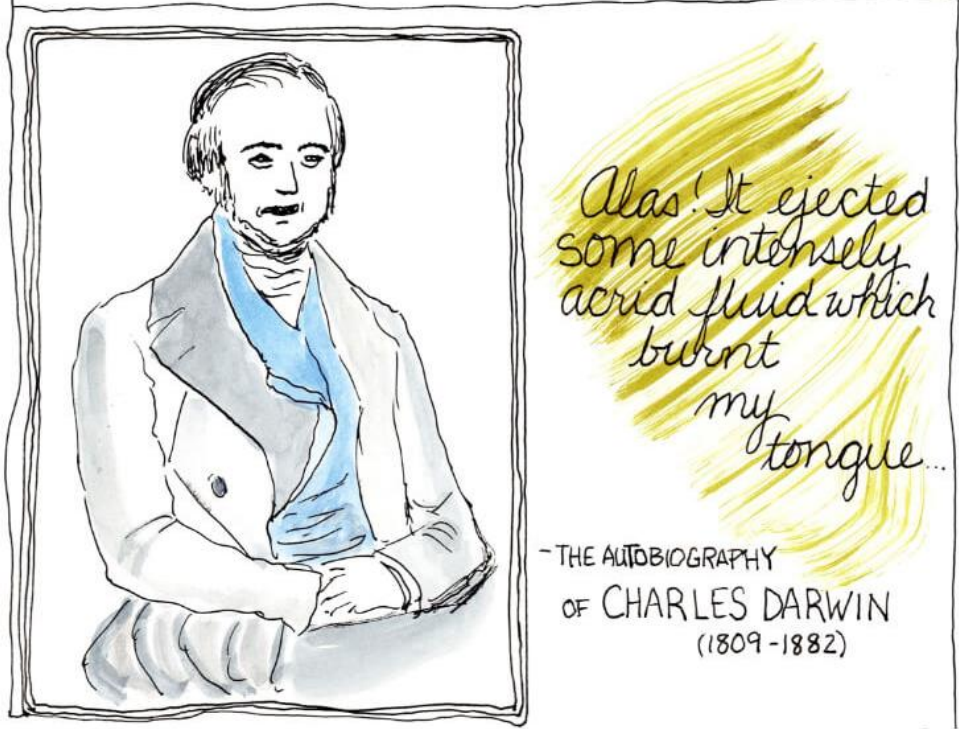 Alas! It ejected
some intensely
acrid fluid which
burnt
my
tongue...
-THE AUTOBIOGRAPHY
OF CHARLES DARWIN
(1809-1882)